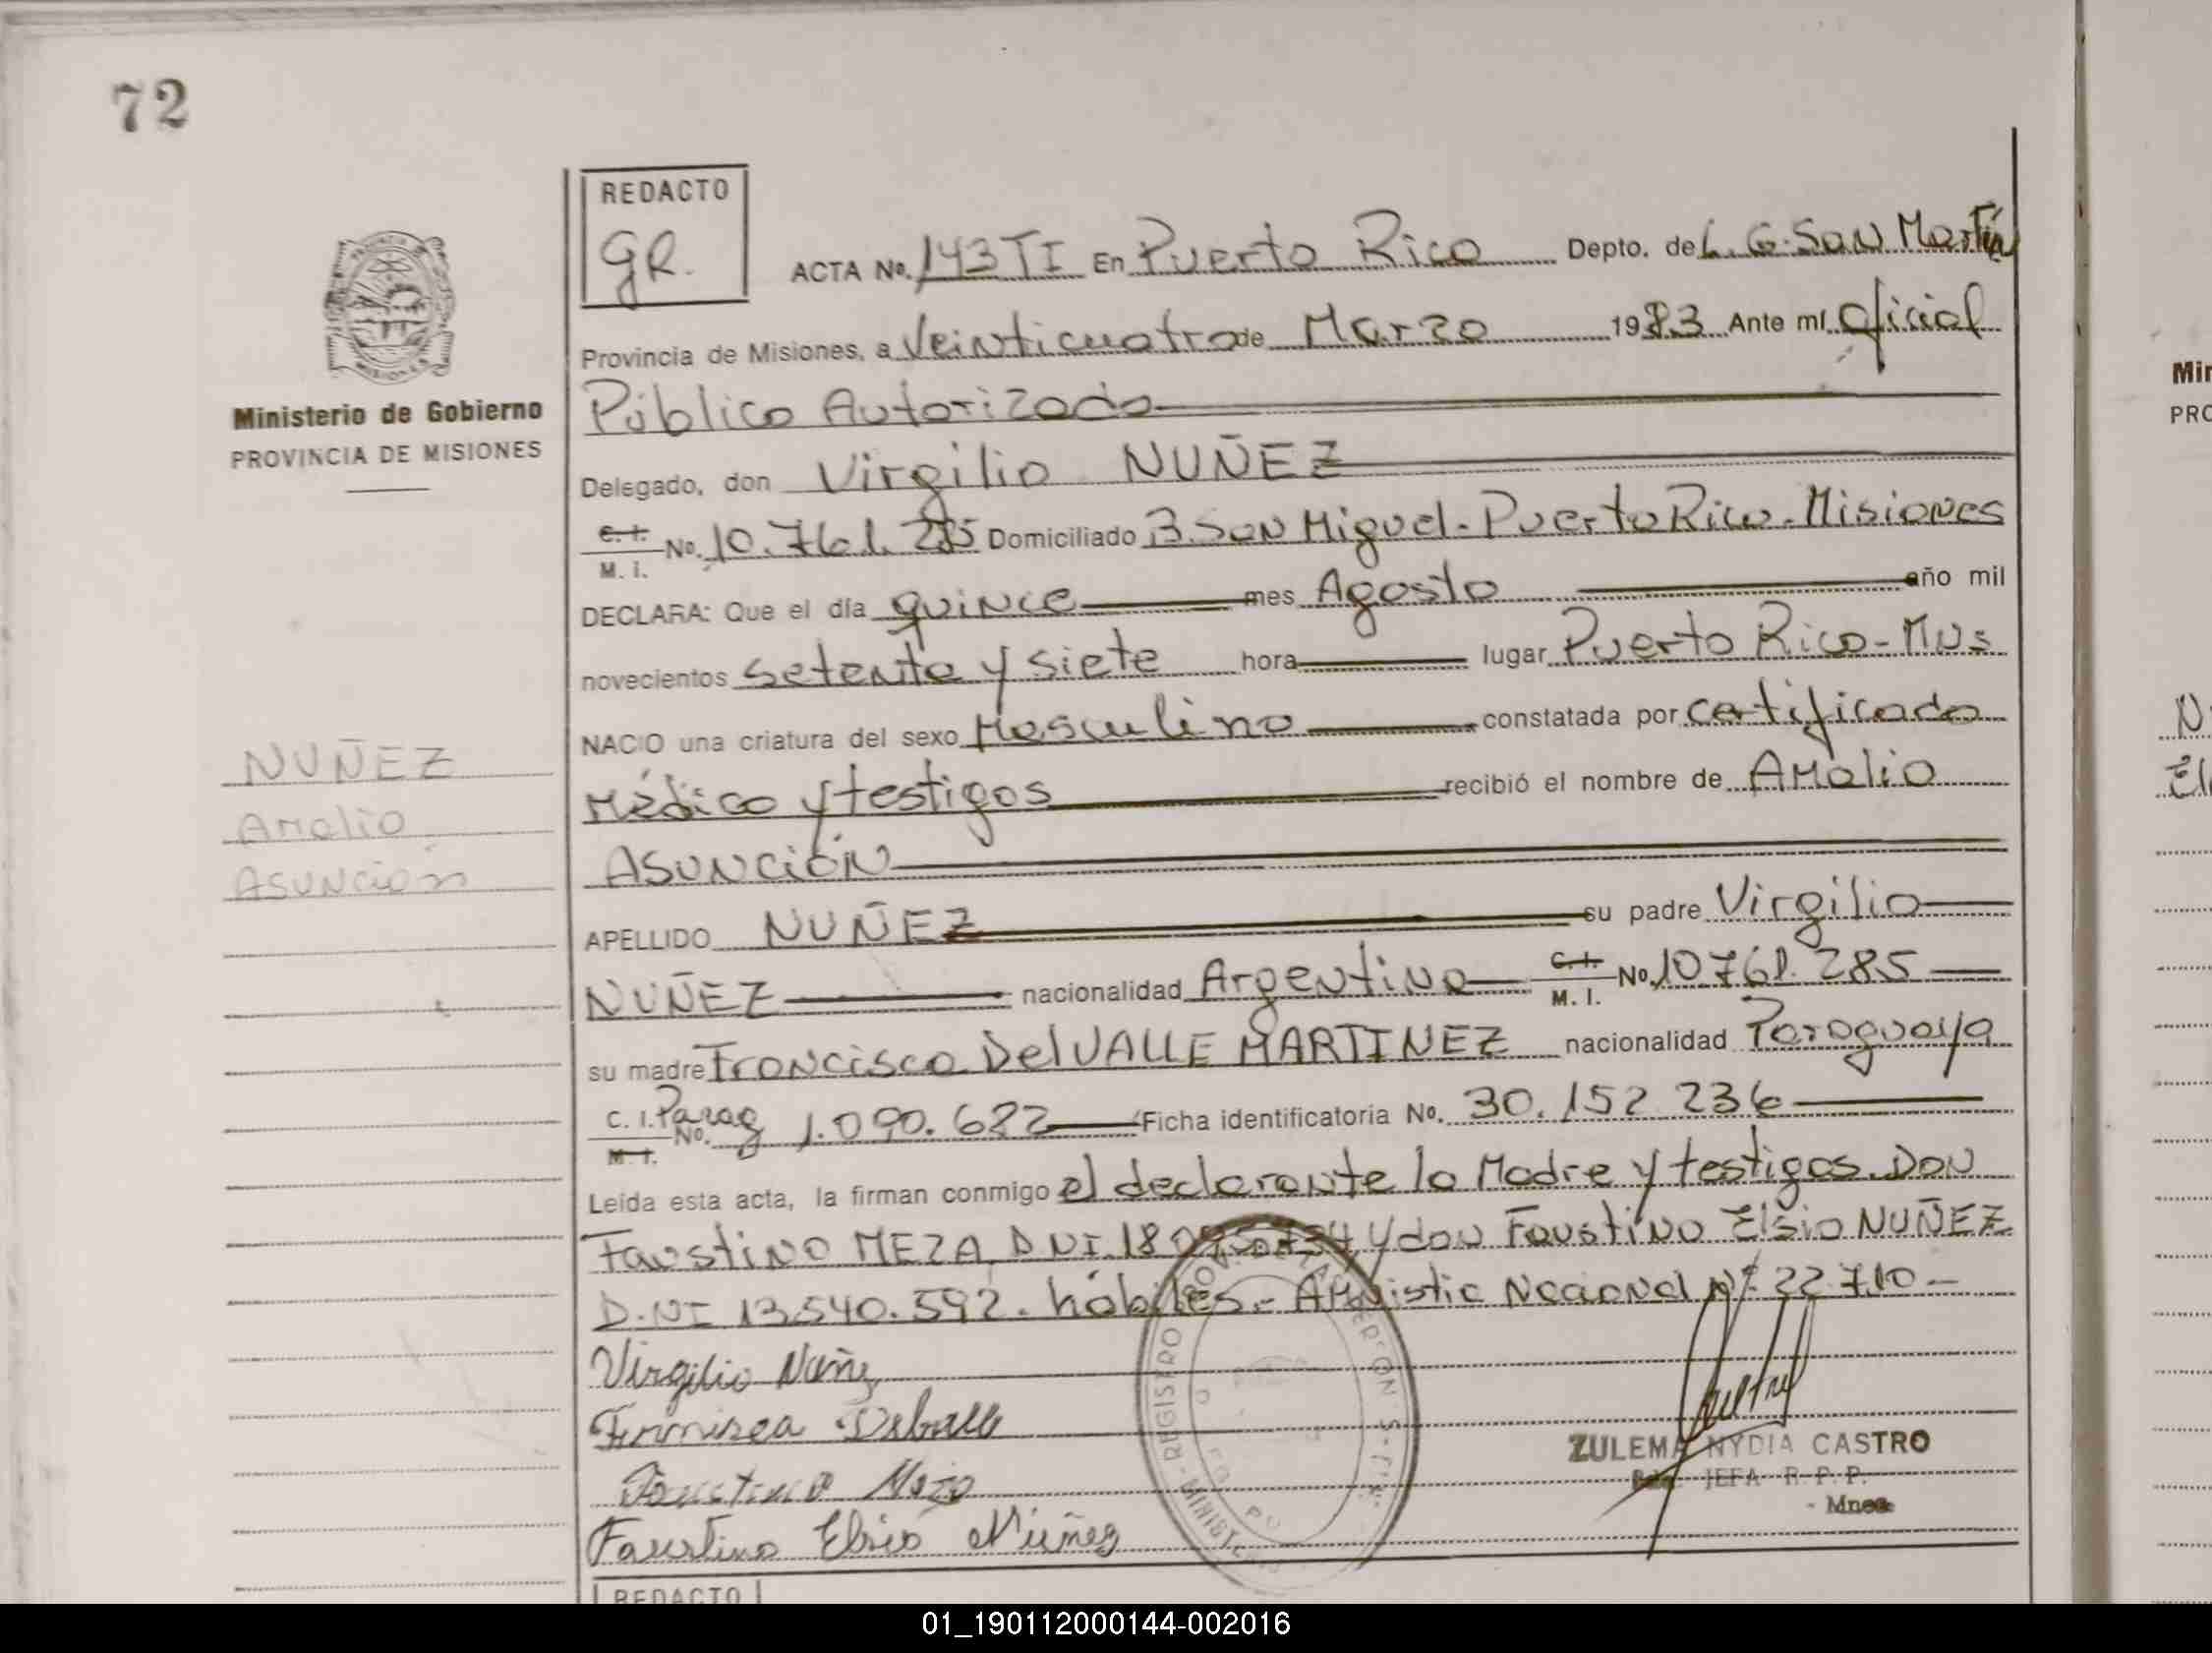 72
REDACTO
GR.
ACTA No. 143 TI En Puerto Rico Depto. de L. G. San Martín
Provincia de Misiones, a Veinticuatro de Marzo 1983 Ante mí Oficial
Público Autorizado
Ministerio de Gobierno
PROVINCIA DE MISIONES
Delegado, don Virgilio NUÑEZ
C. I.
M. I. No. 10.761.285 Domiciliado B. San Miguel - Puerto Rico - Misiones
DECLARA: Que el día quince mes Agosto año mil
novecientos setenta y siete hora lugar Puerto Rico - Mns
NACIO una criatura del sexo Masculino constatada por certificado
Médico y testigos recibió el nombre de Amalio
Asunción
NUÑEZ
Amalio
Asunción
APELLIDO NUÑEZ su padre Virgilio
NUÑEZ nacionalidad Argentina C. I.
M. I. No. 10.761.285
su madre Francisca Del VALLE MARTINEZ nacionalidad Paraguaya
C. I. Parag
M. I. No. 1.090.682 Ficha identificatoria No. 30.152.236
Leída esta acta, la firman conmigo el declarante la Madre y testigos. Don
Faustino MEZA D.N.I. y don Faustino Elsio NUÑEZ
D.NI 13.540.592. hábiles.- Amnistía Nacional Nº 22.710-
Virgilio Nuñez
Faustino Meza
Faustino Elsio Núñez
ZULEMA NYDIA CASTRO
JEFA R. P. P.
Mnes
REDACTO
01_190112000144-002016